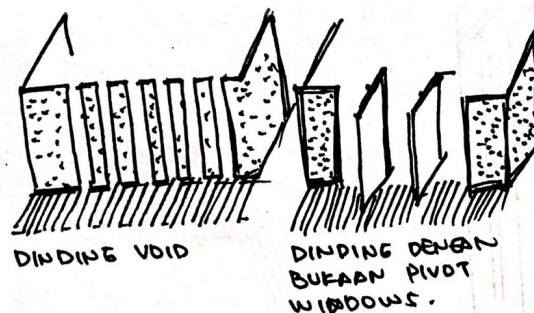 DINDING VOID
DINDING DENGAN
BUKAAN PIVOT
WINDOWS.